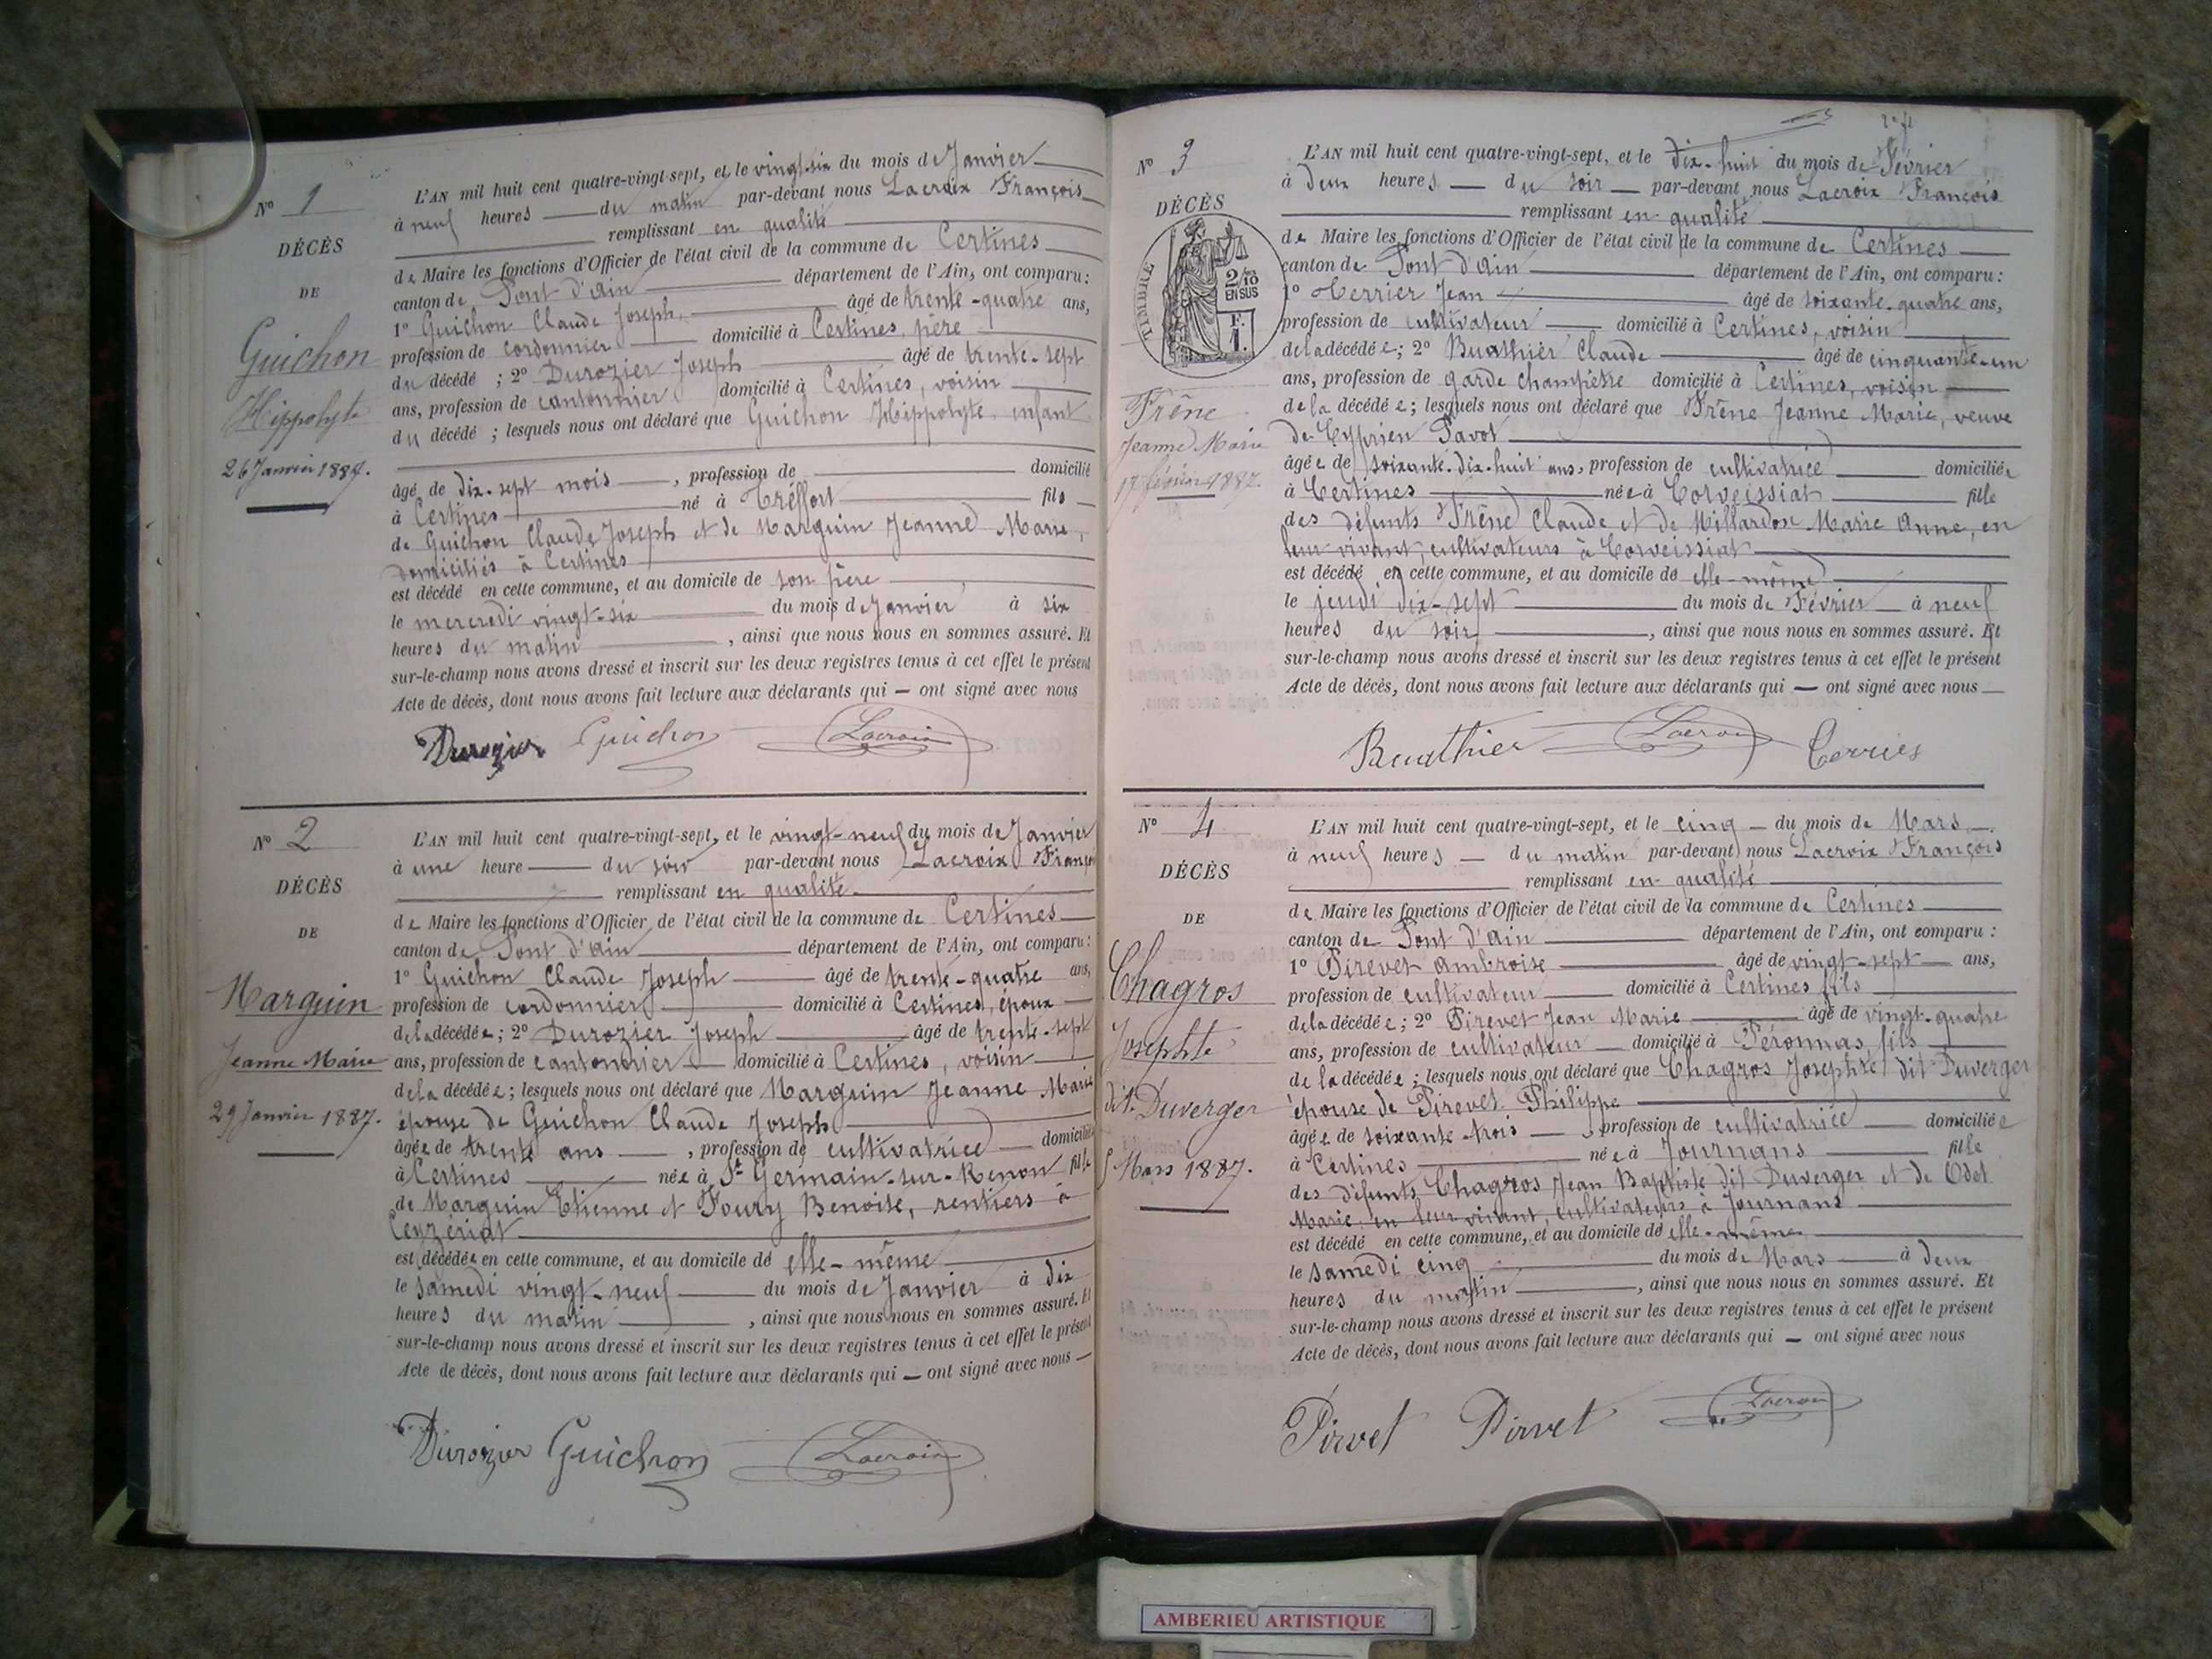 N° 1
DÉCÈS
DE
Guichon
Hippolyte
26 Janvier 1887.
L'AN mil huit cent quatre-vingt-sept, et le vingt-six du mois de Janvier
à neuf heures du matin par-devant nous Lacroix François
remplissant en qualité
de Maire les fonctions d'Officier de l'état civil de la commune de Certines
canton de Pont d'Ain département de l'Ain, ont comparu :
1° Guichon Claude Joseph, âgé de trente-quatre ans,
profession de cordonnier domicilié à Certines, père
du décédé ; 2° Durozier Joseph âgé de trente-sept
ans, profession de cantonnier domicilié à Certines, voisin
du décédé ; lesquels nous ont déclaré que Guichon Hippolyte, enfant
âgé de dix-sept mois, profession de domicilié
à Certines né à Tréffort fils
de Guichon Claude Joseph et de Marguin Jeanne Marie,
domiciliés à Certines
est décédé en cette commune, et au domicile de son père
le mercredi vingt-six du mois de Janvier à six
heures du matin, ainsi que nous nous en sommes assuré. Et
sur-le-champ nous avons dressé et inscrit sur les deux registres tenus à cet effet le présent
Acte de décès, dont nous avons fait lecture aux déclarants qui — ont signé avec nous
Durozier Guichon Lacroix
N° 2
DÉCÈS
DE
Marguin
Jeanne Marie
29 Janvier 1887.
L'AN mil huit cent quatre-vingt-sept, et le vingt-neuf du mois de Janvier
à une heure du soir par-devant nous Lacroix François
remplissant en qualité
de Maire les fonctions d'Officier de l'état civil de la commune de Certines
canton de Pont d'Ain département de l'Ain, ont comparu :
1° Guichon Claude Joseph âgé de trente-quatre ans,
profession de cordonnier domicilié à Certines, époux
de la décédée ; 2° Durozier Joseph âgé de trente-sept
ans, profession de cantonnier domicilié à Certines, voisin
de la décédée ; lesquels nous ont déclaré que Marguin Jeanne Marie
épouse de Guichon Claude Joseph
âgée de trente ans, profession de cultivatrice domiciliée
à Certines née à St Germain-sur-Renon fille
de Marguin Etienne et Foury Benoite, rentiers à
Ceyzériat
est décédée en cette commune, et au domicile de elle-même
le samedi vingt-neuf du mois de Janvier à dix
heures du matin, ainsi que nous nous en sommes assuré. Et
sur-le-champ nous avons dressé et inscrit sur les deux registres tenus à cet effet le présent
Acte de décès, dont nous avons fait lecture aux déclarants qui — ont signé avec nous —
Durozier Guichon Lacroix
N° 3
DÉCÈS
TIMBRE
2/10
EN SUS
F.
1.
Frêne
Jeanne Marie
17 février 1887.
L'AN mil huit cent quatre-vingt-sept, et le dix-huit du mois de Février
à deux heures — du soir — par-devant nous Lacroix François
remplissant en qualité
de Maire les fonctions d'Officier de l'état civil de la commune de Certines
canton de Pont d'Ain département de l'Ain, ont comparu :
1° Terrier Jean âgé de soixante-quatre ans,
profession de cultivateur domicilié à Certines, voisin
de la décédée ; 2° Buathier Claude âgé de cinquante-un
ans, profession de garde champêtre domicilié à Certines, voisin
de la décédée ; lesquels nous ont déclaré que Frêne Jeanne Marie, veuve
de Cyprien Pavot
âgée de soixante-dix-huit ans, profession de cultivatrice domiciliée
à Certines née à Corveissiat fille
des défunts Frêne Claude et de Millardon Marie Anne, en
leur vivant, cultivateurs à Corveissiat
est décédé en cette commune, et au domicile de elle-même
le jeudi dix-sept du mois de Février à neuf
heures du soir, ainsi que nous nous en sommes assuré. Et
sur-le-champ nous avons dressé et inscrit sur les deux registres tenus à cet effet le présent
Acte de décès, dont nous avons fait lecture aux déclarants qui — ont signé avec nous —
Buathier Lacroix Terrier
N° 4
DÉCÈS
DE
Chagros
Josephte
dit Duverger
5 Mars 1887.
L'AN mil huit cent quatre-vingt-sept, et le cinq — du mois de Mars —
à neuf heures — du matin par-devant nous Lacroix François
remplissant en qualité
de Maire les fonctions d'Officier de l'état civil de la commune de Certines
canton de Pont d'Ain département de l'Ain, ont comparu :
1° Pirevet Ambroise âgé de vingt-sept ans,
profession de cultivateur domicilié à Certines fils
de la décédée ; 2° Pirevet Jean Marie âgé de vingt-quatre
ans, profession de cultivateur domicilié à Péronnas, fils
de la décédée ; lesquels nous ont déclaré que Chagros Josephte dit Duverger
épouse de Pirevet Philippe
âgée de soixante-trois, profession de cultivatrice domiciliée
à Certines née à Journans fille
des défunts Chagros Jean Baptiste dit Duverger et de Odet
Marie, en leur vivant, cultivateurs à Journans
est décédé en cette commune, et au domicile de elle-même
le samedi cinq du mois de Mars à deux
heures du matin, ainsi que nous nous en sommes assuré. Et
sur-le-champ nous avons dressé et inscrit sur les deux registres tenus à cet effet le présent
Acte de décès, dont nous avons fait lecture aux déclarants qui — ont signé avec nous
Pirvet Pirvet Lacroix
AMBERIEU ARTISTIQUE